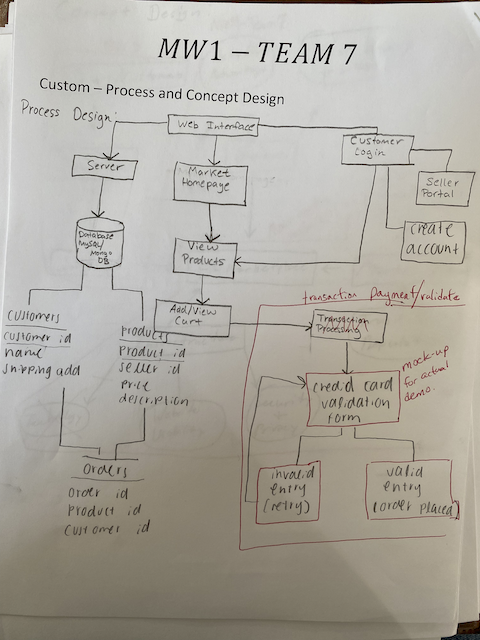 MW1 – TEAM 7
Custom – Process and Concept Design
Process Design:
Web Interface
Customer
Login
Server
Market
Homepage
Seller
Portal
create
account
Database
MySQL/
Mongo
DB
View
Products
Add/View
Cart
transaction payment/validate
Transaction
Processing
customers
customer id
name
shipping add
products
product id
seller id
price
description
credid card
validation
form
mock-up
for actual
demo.
invalid
entry
(retry)
valid
entry
(order placed)
Orders
order id
product id
customer id